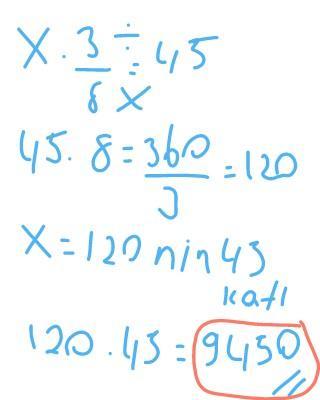 X . 3/8 ÷ = 45
X
45 . 8 = 360/3 = 120
X = 120 nin 45
katı
120 . 45 = 9450